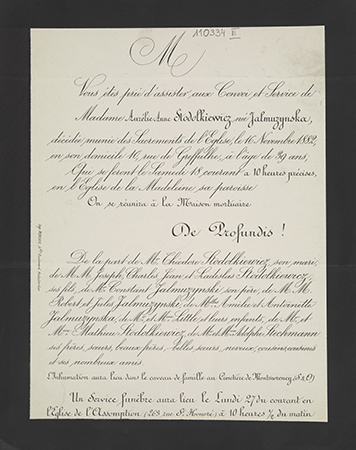 110334 III
M
Vous êtes prié d'assister aux Convoi et Service de
Madame Aurélie Anne Stodolkiewicz née Jalmuzynska,
décédée, munie des Sacrements de l'Eglise, le 16 Novembre 1882,
en son domicile 16, rue de Greffulhe, à l'âge de 39 ans,
Qui se feront le Samedi 18 courant à 10 heures précises,
en l'Eglise de la Madeleine, sa paroisse.
On se réunira à la Maison mortuaire
De Profundis !
De la part de Mr Théodore Stodolkiewicz, son mari,
de M.M. Joseph, Charles, Jean et Ladislas Stodolkiewicz,
ses fils, de Mr Constant Jalmuzynski, son père, de M.M.
Robert et Jules Jalmuzynski, de Melles Amélie et Antoinette
Jalmuzynska, de Mr et Mme Little et leurs enfants, de Mr et
Mme Mathieu Stodolkiewicz, de Mr et Mme Adolphe Stockmann
ses frères, sœurs, beaux frères, belles sœurs, neveux, cousins, cousines
et ses nombreux amis.
L'Inhumation aura lieu dans le caveau de famille au Cimetière de Montmorency (S & O)
Un Service funèbre aura lieu le Lundi 27 du courant en
l'Eglise de l'Assomption (263 rue St Honoré) à 10 heures ½ du matin